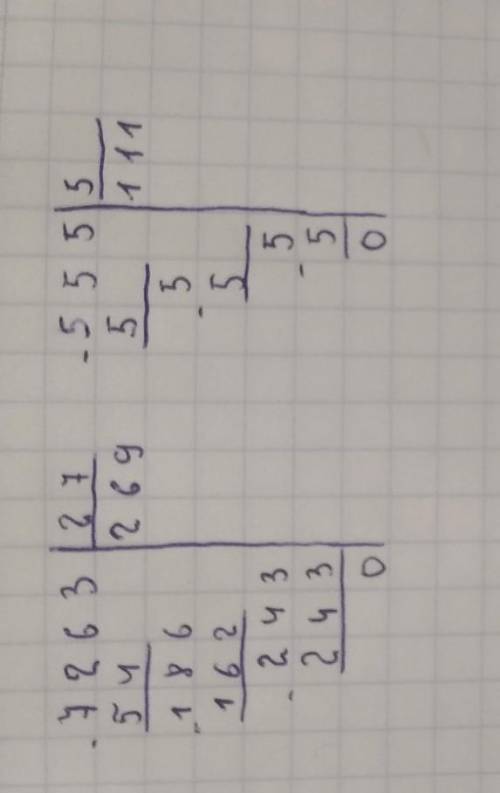 - 7 2 6 3 | 2 7
5 4 | 2 6 9
- 1 8 6
1 6 2
- 2 4 3
2 4 3
0
- 5 5 5 | 5
5 | 1 1 1
- 5
5
- 5
5
0